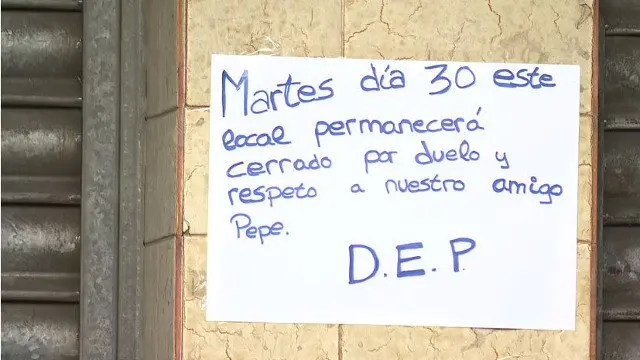 Martes día 30 este
local permanecerá
cerrado por duelo y
respeto a nuestro amigo
Pepe.
D.E.P.